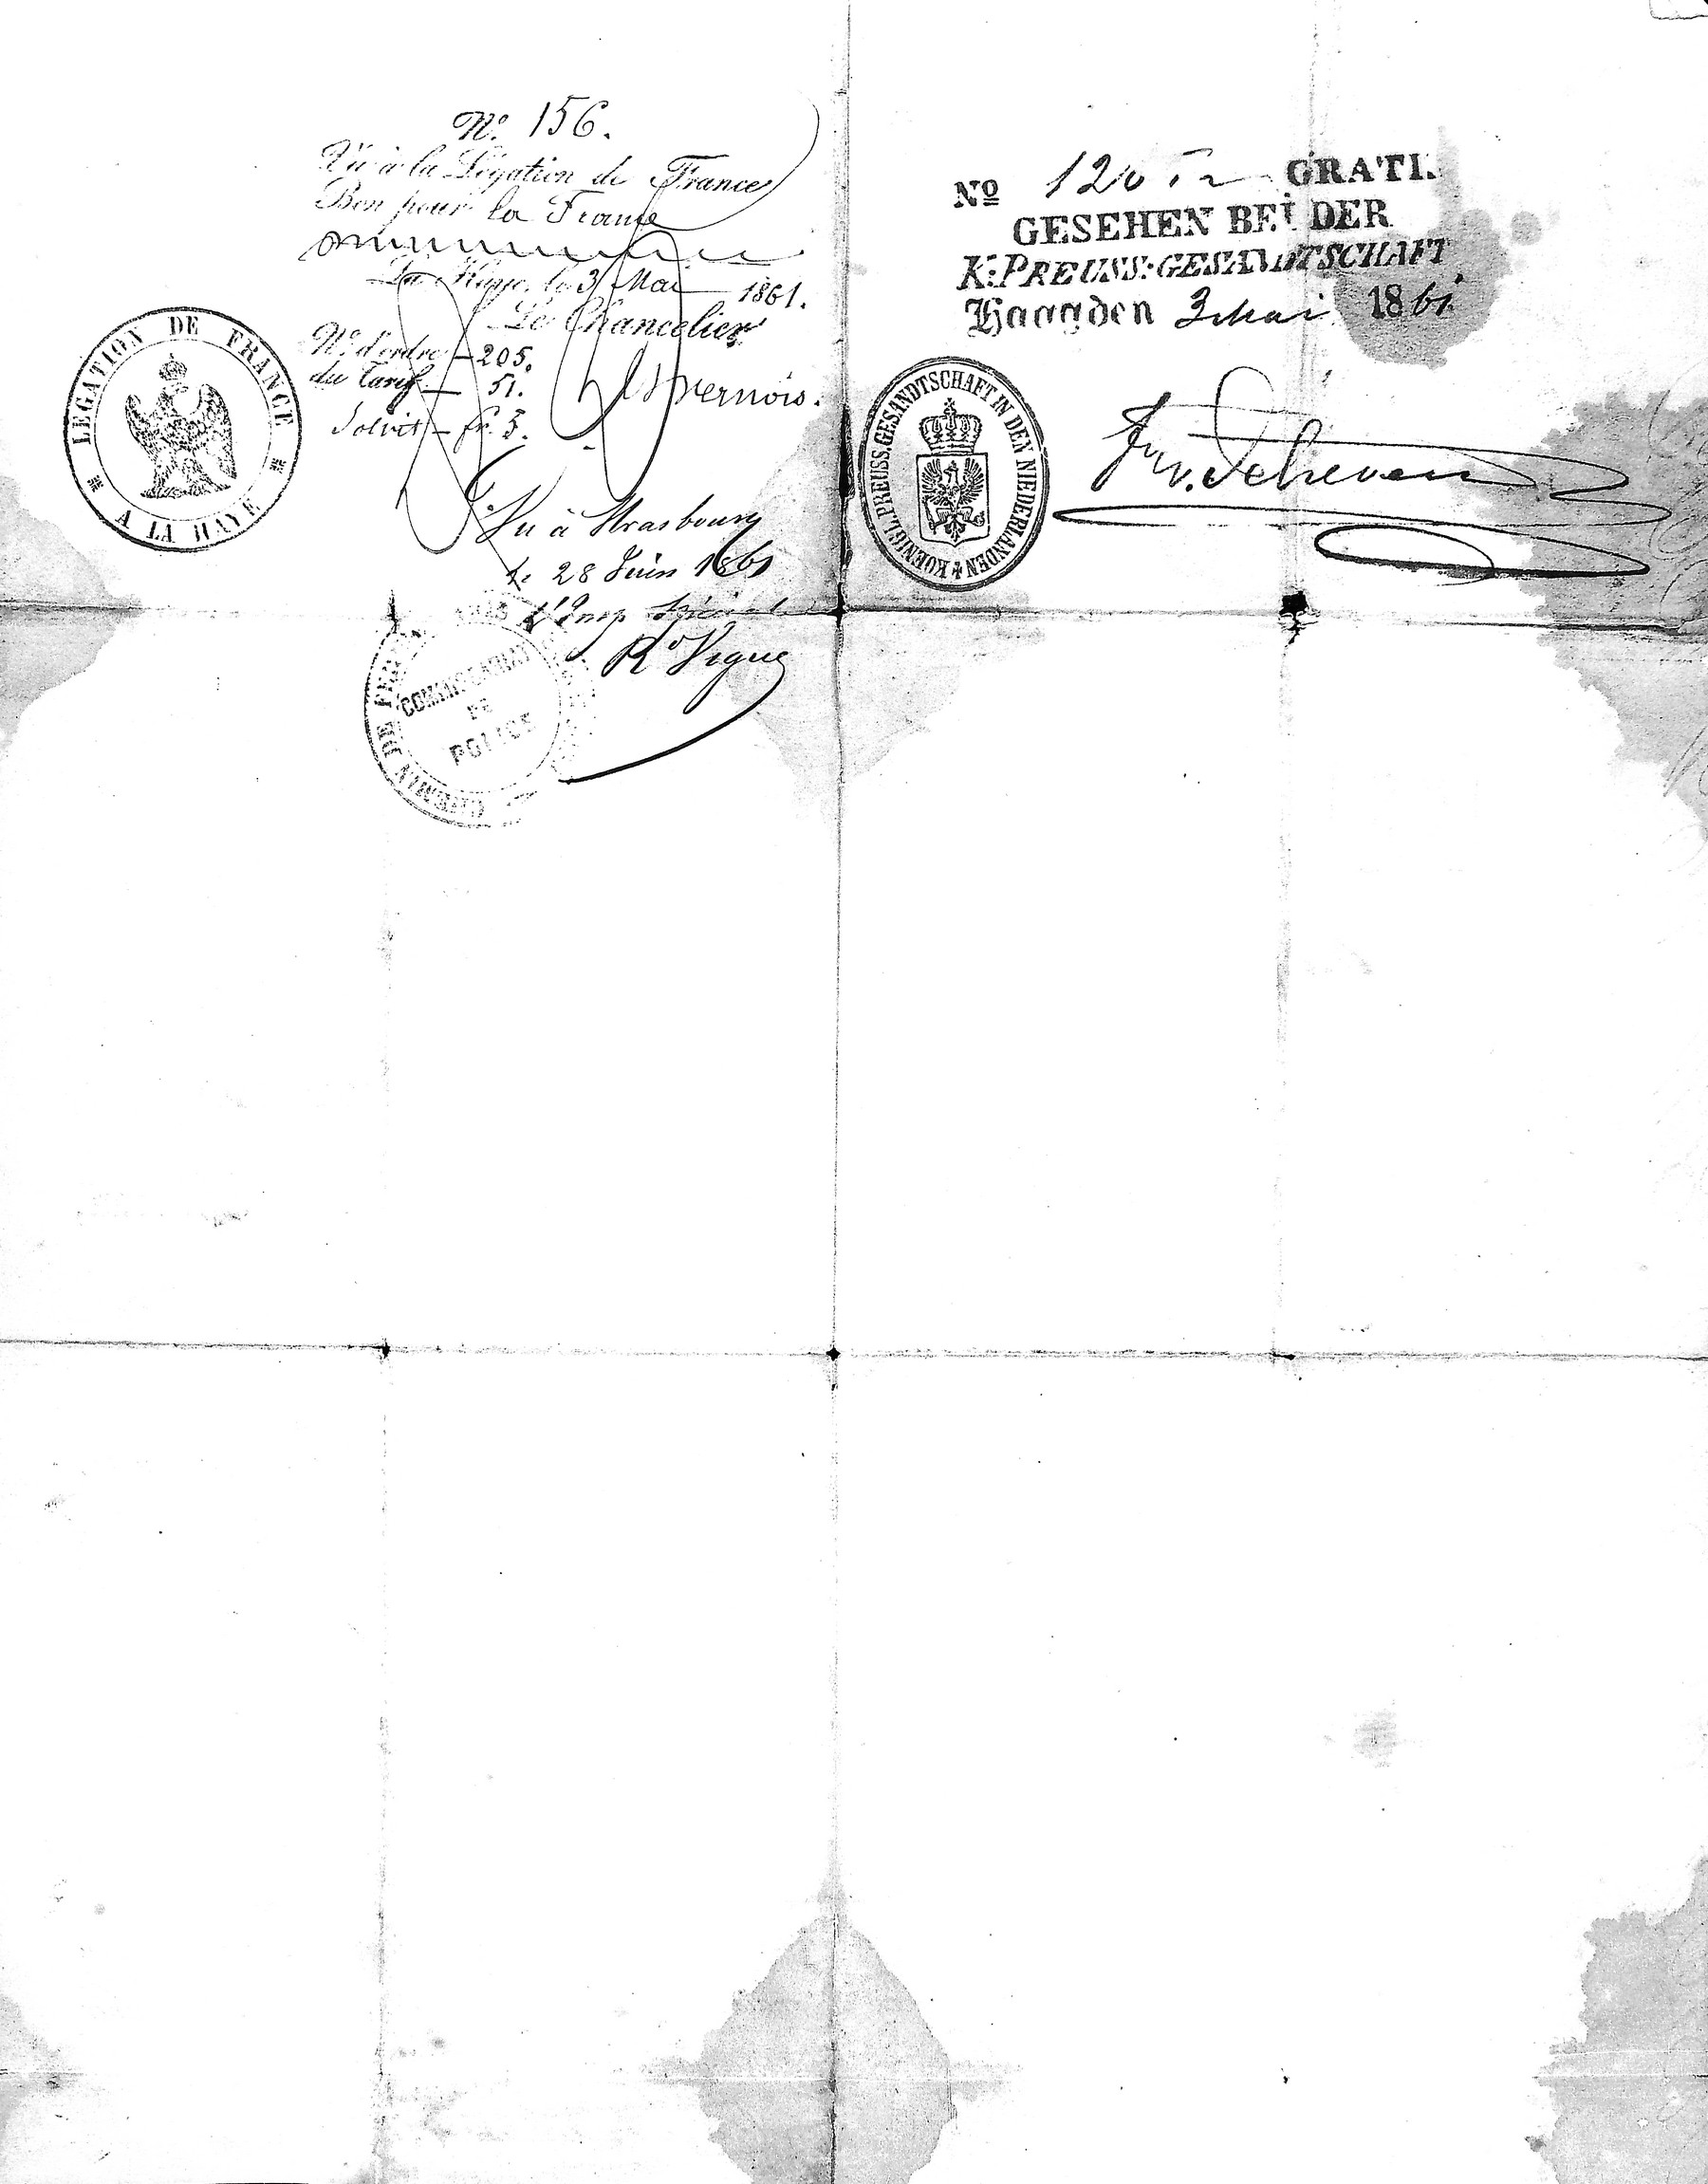 No. 156.
Vu à la Légation de France
Bon pour la France
La Haye, le 3 Mai 1861.
Le Chancelier
No. d'ordre - 205.
du Tarif - 51.
Solvit - fr. 3.
LEGATION DE FRANCE
A LA HAYE
Vu à Strasbourg
le 28 Juin 1861
l'Insp Spécial
COMMISSARIAT
DE
POLICE
CHEMIN DE FER
No 120 GRATI
GESEHEN BEI DER
K: PREUSS: GESANDTSCHAFT
Haag den 3 Mai 1861.
KOENIGL. PREUSS. GESANDTSCHAFT IN DEN NIEDERLANDEN